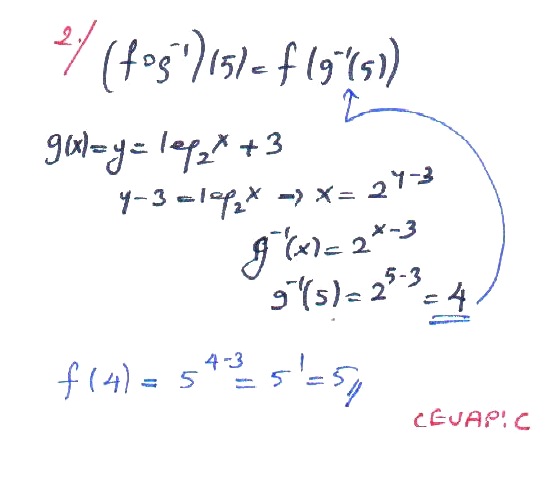 2./ (fog⁻¹)(5) = f(g⁻¹(5))
g(x) = y = log₂x + 3
y - 3 = log₂x → x = 2^(y-3)
g⁻¹(x) = 2^(x-3)
g⁻¹(5) = 2^(5-3) = 4
f(4) = 5^(4-3) = 5^1 = 5//
CEVAP: C